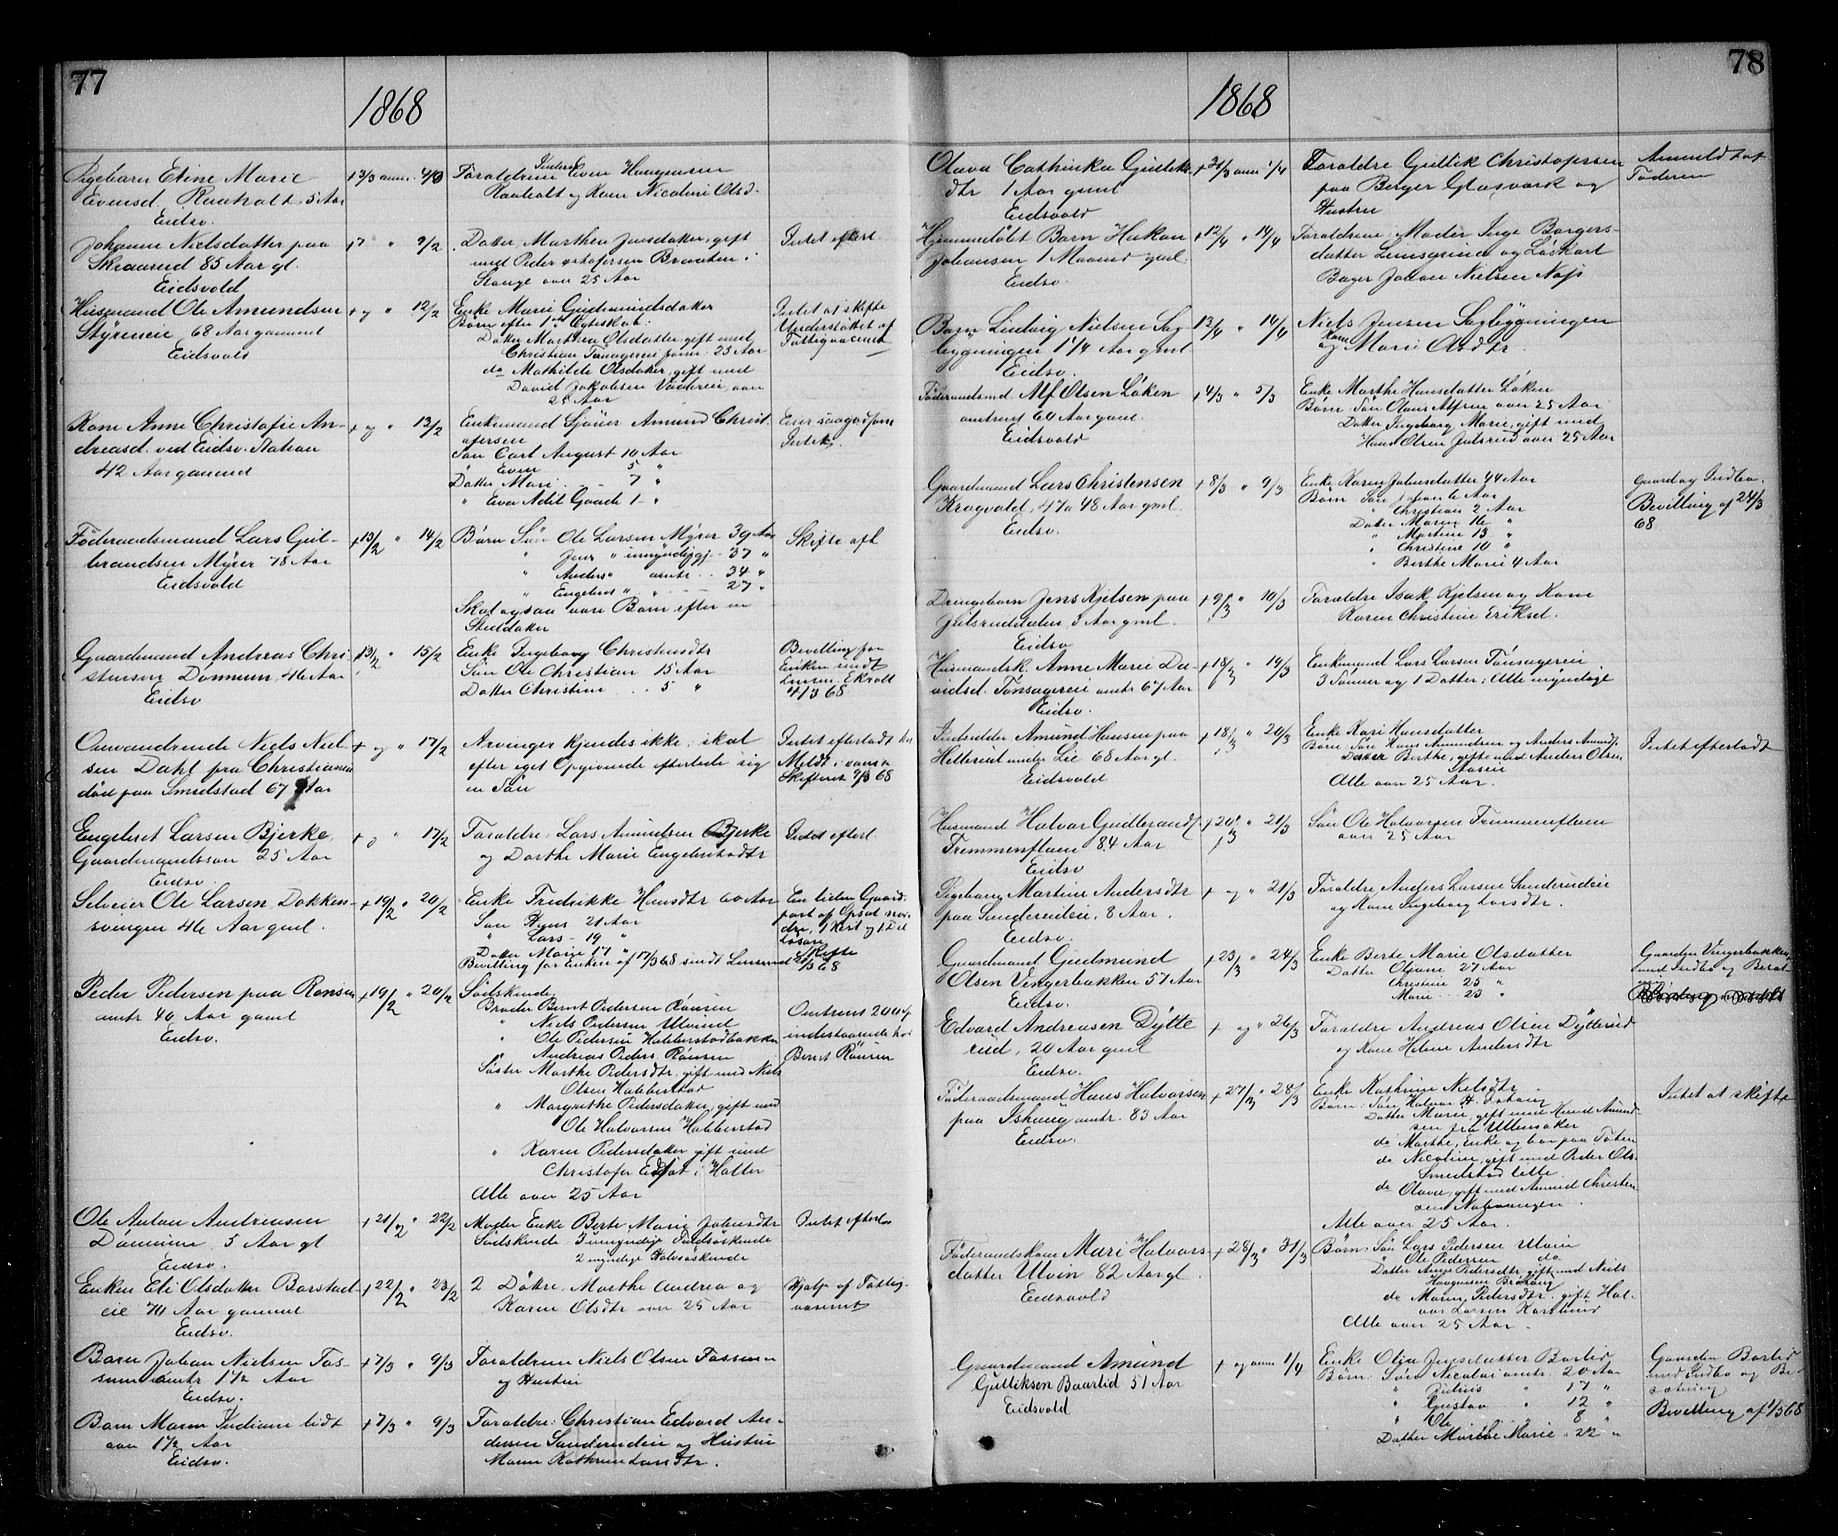 77
1868
Pigebarn Eline Marie
Evensd. Raaholt, 5 Aar
Eidsv.
+ 3/3 anm. 4/3
Forældrene Even Haagensen
Raaholt og Kone Nicoline Olsd.
Johanne Nielsdatter paa
Skraarud 85 Aar gl.
Eidsvold
+ 7 " 9/2
Datter Marthea Jensdatter, gift
med Peder Braaten i
Stange over 25 Aar
Intet efterl.
Husmand Ole Amundsen
Styreneie 68 Aar gammel
Eidsvold
+ og " 12/2
Enke Marie Gudmundsdatter
Børn efter 1ste Ægteskab:
Datter Marthea Olsdatter gift med
Christian Tønsagereie 25 Aar
do Mathilde Olsdatter, gift med
David Jakobsen over
25 Aar
Intet at skifte
Understøttet af
Fattigvæsenet
Kone Anne Christofie An-
dreasd. ved Eidsv. Station
42 Aar gammel
+ og " 13/2
Enkemand Sjouer Amund Christ-
ofersen
Søn Carl August 10 Aar
" Even 5 "
Datter Mari 7 "
" Eva Adil Gaade 1 "
Eier saagodtsom
Intet
Føderaadsmand Lars Gul-
brandsen Myrer 78 Aar
Eidsvold
+ 13/2 " 14/2
Børn Søn Ole Larsen Myrer 39 Aar
" Jens " 37 "
" Anders " 34 "
" Engebret " 27 "
Skal ogsaa være Børn efter en
Skifte afh.
Gaardmand Andreas Chri-
stensen Dønnum, 46 Aar
Eidsv
+ 13/2 " 15/2
Enke Ingeborg Christensdtr
Søn Ole Christian 15 Aar
Datter Christine 5 "
Bevilling for
Enken sendt
4/3 68
Omvandrende Niels Niel-
sen Dahl fra Christiania
død paa Smedstad 67 Aar
+ og " 17/2
Arvinger kjendes ikke; skal
efter eget Opgivende efterlade sig
en Søn
Intet efterladt
Skifteret 9/3 68
Engebret Larsen Bjerke
Gaardmandssøn 25 Aar
Eidsv.
+ " 17/2
Forældre: Lars Amundsen Bjerke
og Dorthe Marie Engebretsdtr
Intet efterl.
Selveier Ole Larsen Dokken-
svingen 46 Aar gml.
+ 19/2 " 20/2
Enke Fredrikke Hansdtr 60 Aar
Søn Hans 21 Aar
" Lars 19 "
Datter Marie 17 "
Bevilling for Enken af 17/3 68 sendt Lensmand
En liden Gaard-
part af Opsal
Skifte
Peder Pedersen paa Rønsen
omtr 40 Aar gaml
Eidsv.
+ 19/2 " 20/2
Sødskende
Broder Bernt Pedersen Rønsen
" Niels Pedersen Ulvind
" Ole Pedersen Habberstadbakken
" Andreas Peders. Rønsen
Søster Marthe Pedersdtr, gift med Niels
Olsen Habberstad
" Margrethe Pedersdatter, gift med
Ole Halvorsen Habberstad
" Karen Pedersdatter gift med
Christofer i Holter
Alle over 25 Aar
Omtrent 200
indestaaende hos
Bernt Rønsen
Ole Anton Andreasen
Dønnum 5 Aar gl
Eidsv.
+ 21/2 " 22/2
Moder Enke Berte Marie Johnsdtr
Sødskende 3 umyndige Helsøskende
2 myndige Halvsøskende
Intet efterl.
Enken Eli Olsdatter Borstad
eie 70 Aar gammel
Eidsv.
+ 22/2 " 23/2
2 Døttre, Marthe Andrea og
Karen Olsdtr over 25 Aar
Hjælp af Fattig-
væsenet
Barn Johan Nielsen Fos-
sum omtr 1 1/2 Aar
Eidsv.
+ 7/3 " 9/3
Forældrene Niels Olsen Fossum
og Hustru
Barn Maren Indiane lidt
over 1 1/2 Aar
Eidsv.
+ 7/3 " 9/3
Forældre: Christian Edvard An-
dersen Sanderudeie og Hustru
Maren Kathrine Larsdtr.
78
1868
Olava Cathinka Gullik-
dtr 1 Aar gaml
Eidsvold
+ 31/3 anm 1/4
Forældre Gullik Christofersen
paa Berger Glasværk og
Hustru
Anmeldt af
Faderen
Hjemmedøbt Barn Hakon
Johansen 1 Maaned gml.
Eidsv.
+ 12/4 " 14/4
Forældrene: Moder Inge Borgers-
datter Lensgrind og Løskarl
Bager Johan Nielsen Næss
Barn Ludvig Nielsen Sag-
bygningen 1 1/4 Aar gml
Eidsv.
13/4 " 14/4
Niels Jensen Sagbygningen
og Kone Marie Olsdtr.
Føderaadsmd. Alf Olsen Løken
omtrent 60 Aar gaml.
Eidsvold
+ 4/3 " 5/3
Enke Marthe Hansdatter Løken
Børn: Søn Olaus Alfsen over 25 Aar
Datter Ingeborg Marie, gift med
Hans Olsen Julsrud over 25 Aar
Gaardmand Lars Christensen
Krogvold, 47 a 48 Aar gml.
Eidsv.
+ 8/3 " 9/3
Enke Karen Johnsdatter 44 Aar
Børn: Søn 6 Aar
" Christian 2 Aar
Datter Maren 16 "
" Martine 13 "
" Christine 10 "
" Berthe Marie 4 Aar
Gaard og Indbo.
Bevilling af 24/3
68
Drengebarn Jens Kjelsen paa
Julsruddalen, 3 Aar gml.
Eidsv
+ 9/3 " 10/3
Forældre Isak Kjelsen og Kone
Karen Christine Eriksd.
Husmandsk. Anne Marie Da-
vidsd. Tønsagereie omtr 67 Aar
Eidsv.
+ 18/3 " 19/3
Enkemand Lars Larsen Tønsagereie
3 Sønner og 1 Datter; Alle myndige
Inderst Amund Hansen paa
under Lie 68 Aar gl.
Eidsvold
+ 18/3 " 20/3
Enke Kari Hansdatter
Børn: Søn Hans Amundsen og Anders Amunds.
Datter Berthe, gift med Anders Olsen
Alle over 25 Aar.
Intet efterladt
Husmand Halvor Gudbrands.
Fremmenflaen 84 Aar
Eidsv
+ 20/3 " 21/3
Søn Ole Halvorsen Fremmenflaen
over 25 Aar
Pigebarn Martine Andersdtr
paa Sanderudeie, 8 Aar.
Eidsv.
+ og " 21/3
Forældre Anders Larsen Sanderudeie
og Kone Ingeborg Larsdtr.
Gaardmand Gudmund
Olsen Vengerbakken 57 Aar
Eidsv.
+ 23/3 " 24/3
Enke Berte Marie Olsdatter
Datter Oliane 27 Aar
Christine 25 "
Marie 23 "
Gaarden Vengerbakken
med Indbo og Besæt-
Edvard Andreasen Dytte-
rud, 20 Aar gml
Eidsv.
+ og " 26/3
Forældre Andreas Olsen Dytterud
og Kone Helene Andersdtr
Føderaadsmand Hans Halvorsen
paa Ishaug omtr. 83 Aar
Eidsv.
+ 27/3 " 28/3
Enke Kathrine Nielsdtr
Børn: Søn Halvor H. Ishaug
Datter Marie, gift med Knud Amund-
sen fra Ullensaker
do Marthe, Enke og bor paa Toten
do Nicoline, gift med Peder Ols.
Smedstad lille
do Olava, gift med Amund Christen-
sen
Alle over 25 Aar.
Intet at skifte
Føderaadskone Mari Halvors-
datter Ulvin 82 Aar gl.
Eidsvold
+ 28/3 " 31/3
Børn: Søn Lars Pedersen Ulvin
" Ole Pedersen do
Datter Anne Pedersdtr, gift med Niels
Haagensen
do Maren Pedersdtr. gift Hal-
vor Larsen
Alle over 25 Aar.
Gaardmand Amund
Gulliksen Baarlid 51 Aar
Eidsvold
+ og anm 1/4
Enke Olea Jensdatter Borlid,
Børn: Søn Nicolai omtr. 20 Aar
" Julius " 17 "
" Gustav " 12 "
" Ole " 8 "
Datter Marthe Marie 22 "
Gaarden Borlid
med Indbo og Be-
sætning
Bevilling af 1/5 68